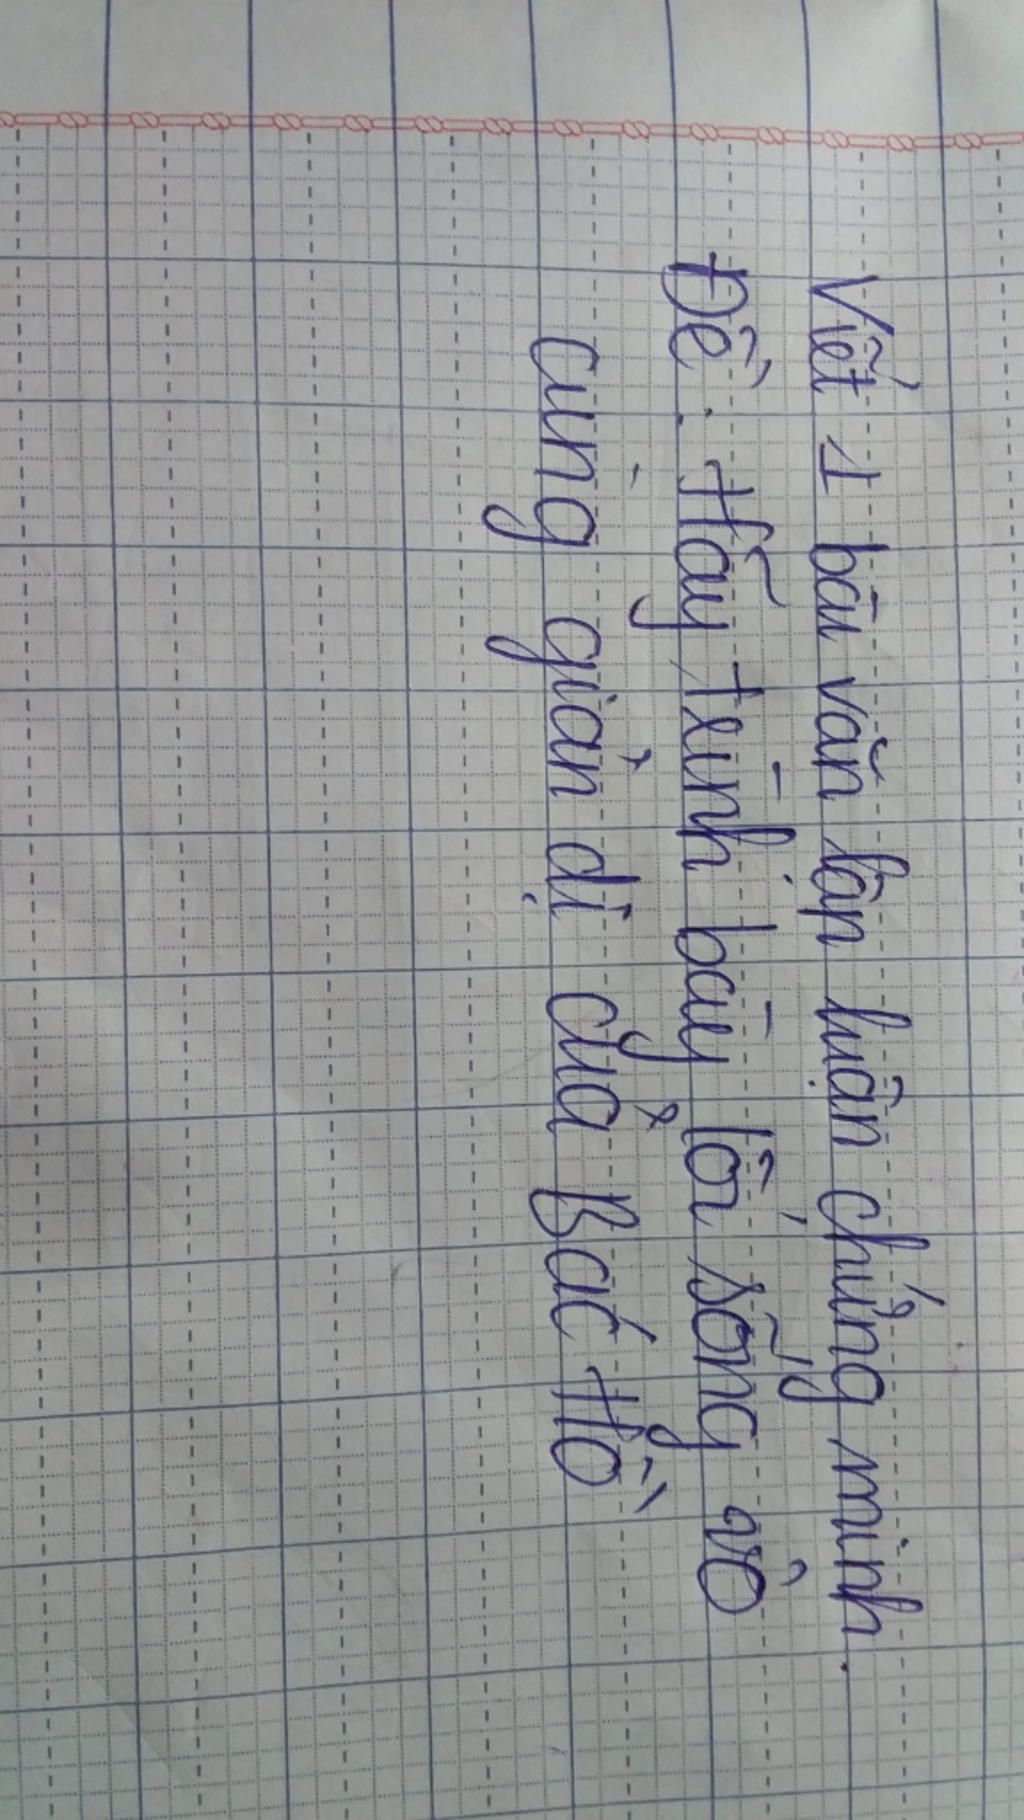 Viết 1 bài văn lập luận chứng minh.
Đề: Hãy trình bày lối sống vô
cùng giản dị của Bác Hồ